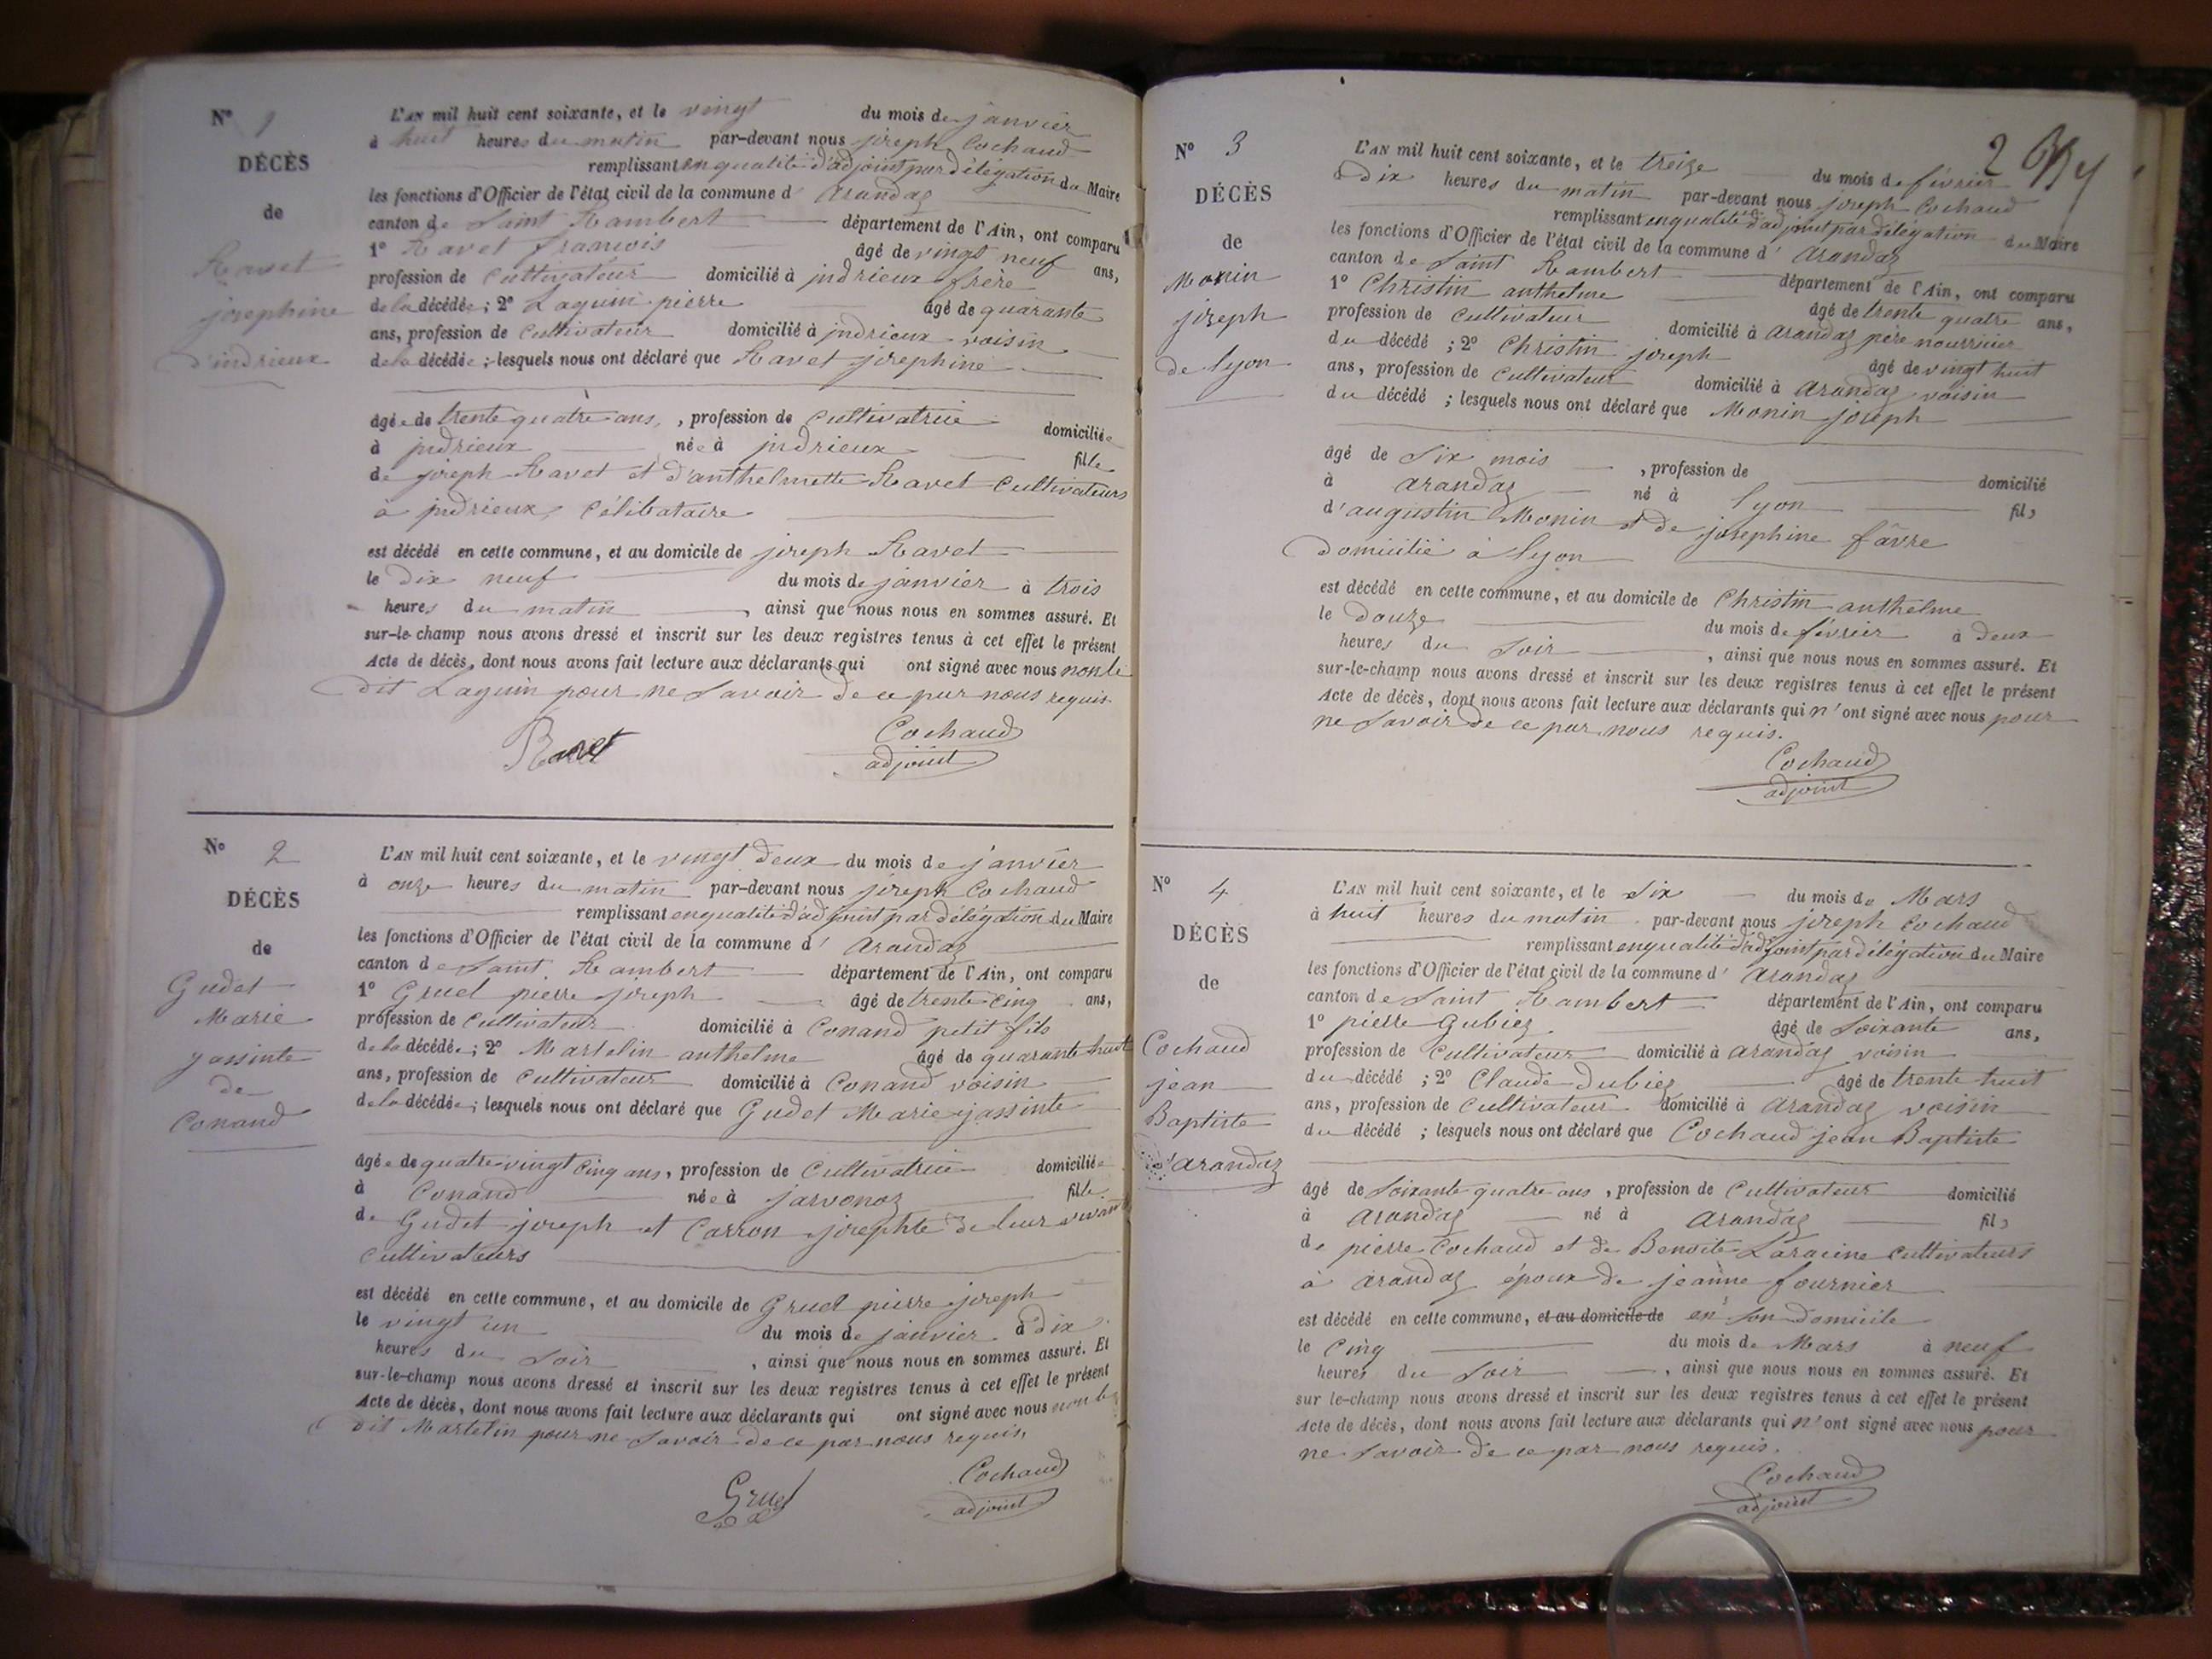 N° 1
DÉCÈS
de
Ravet
josephine
d'indrieux
L'AN mil huit cent soixante, et le vingt du mois de janvier
à huit heures du matin par-devant nous joseph Cochaud
remplissant en qualité d'adjoint par délégation du Maire
les fonctions d'Officier de l'état civil de la commune d' Arandaz
canton de Saint Rambert département de l'Ain, ont comparu
1° Ravet francois âgé de vingt neuf ans,
profession de Cultivateur domicilié à indrieux frère
de la décédée ; 2° Laguin pierre âgé de quarante
ans, profession de Cultivateur domicilié à indrieux voisin
de la décédée ; lesquels nous ont déclaré que Ravet josephine
âgée de trente quatre ans, , profession de Cultivatrice domiciliée
à indrieux née à indrieux fille
de joseph Ravet et d'anthelmette Ravet Cultivateurs
à indrieux, Célibataire
est décédé en cette commune, et au domicile de joseph Ravet
le dix neuf du mois de janvier à trois
heures du matin , ainsi que nous nous en sommes assuré. Et
sur-le-champ nous avons dressé et inscrit sur les deux registres tenus à cet effet le présent
Acte de décès, dont nous avons fait lecture aux déclarants qui ont signé avec nous non le
dit Laguin pour ne Savoir de ce par nous requis.
Ravet Cochaud
adjoint
N° 2
DÉCÈS
de
Gudet
Marie
yassinte
de
Conand
L'AN mil huit cent soixante, et le vingt deux du mois de janvier
à onze heures du matin par-devant nous joseph Cochaud
remplissant en qualité d'adjoint par délégation du Maire
les fonctions d'Officier de l'état civil de la commune d' Arandaz
canton de Saint Rambert département de l'Ain, ont comparu
1° Gruel pierre joseph âgé de trente cinq ans,
profession de Cultivateur domicilié à Conand petit fils
de la décédée ; 2° Martelin anthelme âgé de quarante huit
ans, profession de Cultivateur domicilié à Conand voisin
de la décédée ; lesquels nous ont déclaré que Gudet Marie yassinte
âgée de quatre vingt Cinq ans, profession de Cultivatrice domiciliée
à Conand née à jarvonoz fille
de Gudet joseph et Carron josephte de leur vivant
Cultivateurs
est décédé en cette commune, et au domicile de Gruel pierre joseph
le vingt un du mois de janvier à dix
heures du Soir , ainsi que nous nous en sommes assuré. Et
sur-le-champ nous avons dressé et inscrit sur les deux registres tenus à cet effet le présent
Acte de décès, dont nous avons fait lecture aux déclarants qui ont signé avec nous non le
dit Martelin pour ne Savoir de ce par nous requis,
Gruel Cochaud
adjoint
2
N° 3
DÉCÈS
de
Monin
joseph
de lyon
L'AN mil huit cent soixante, et le treize du mois de février
à Dix heures du matin par-devant nous joseph Cochaud
remplissant en qualité d'adjoint par délégation du Maire
les fonctions d'Officier de l'état civil de la commune d' Arandaz
canton de Saint Rambert département de l'Ain, ont comparu
1° Christin anthelme âgé de trente quatre ans,
profession de Cultivateur domicilié à Arandaz père nourricier
du décédé ; 2° Christin joseph âgé de vingt huit
ans, profession de Cultivateur domicilié à Arandaz voisin
du décédé ; lesquels nous ont déclaré que Monin joseph
âgé de Six mois , profession de domicilié
à Arandaz né à lyon fils
d'augustin Monin et de josephine favre
Domicilié à lyon
est décédé en cette commune, et au domicile de Christin anthelme
le Douze du mois de février à Deux
heures du Soir , ainsi que nous nous en sommes assuré. Et
sur-le-champ nous avons dressé et inscrit sur les deux registres tenus à cet effet le présent
Acte de décès, dont nous avons fait lecture aux déclarants qui n'ont signé avec nous pour
ne Savoir de ce par nous requis.
Cochaud
adjoint
N° 4
DÉCÈS
de
Cochaud
jean
Baptiste
d'Arandaz
L'AN mil huit cent soixante, et le Six du mois de Mars
à huit heures du matin par-devant nous joseph Cochaud
remplissant en qualité d'adjoint par délégation du Maire
les fonctions d'Officier de l'état civil de la commune d' Arandaz
canton de Saint Rambert département de l'Ain, ont comparu
1° pierre Gubiez âgé de Soixante ans,
profession de Cultivateur domicilié à Arandaz voisin
du décédé ; 2° Claude Dubiez âgé de trente huit
ans, profession de Cultivateur domicilié à Arandaz voisin
du décédé ; lesquels nous ont déclaré que Cochaud jean Baptiste
âgé de Soixante quatre ans , profession de Cultivateur domicilié
à Arandaz né à Arandaz fils
de pierre Cochaud et de Benoite Laracine Cultivateurs
à Arandaz époux de jeanne fournier
est décédé en cette commune, et au domicile de en son Domicile
le Cinq du mois de Mars à neuf
heures du Soir , ainsi que nous nous en sommes assuré. Et
sur le-champ nous avons dressé et inscrit sur les deux registres tenus à cet effet le présent
Acte de décès, dont nous avons fait lecture aux déclarants qui n'ont signé avec nous pour
ne Savoir de ce par nous requis.
Cochaud
adjoint